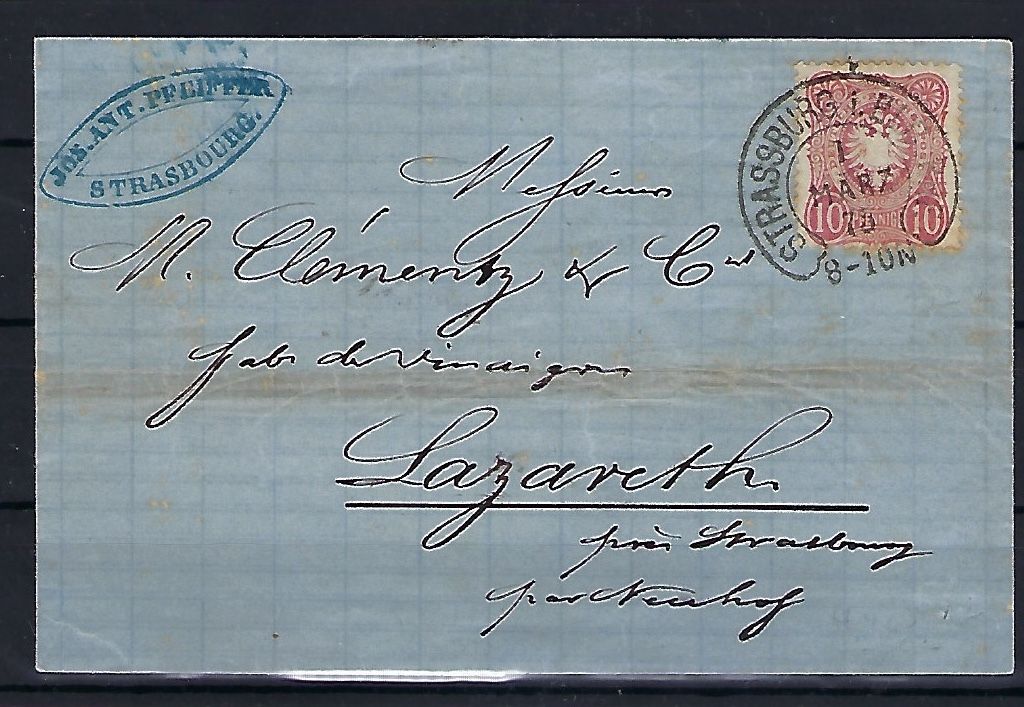 JOS. ANT. PFEIFFER
STRASBOURG.
STRASSBURG I. E.
1
MÄRZ
8-10N
10 PFENNIG 10
Messieurs
M. Clémentz & Cie
fabr de Vinaigres
Lazareth.
près Strasbourg
par Neuhof